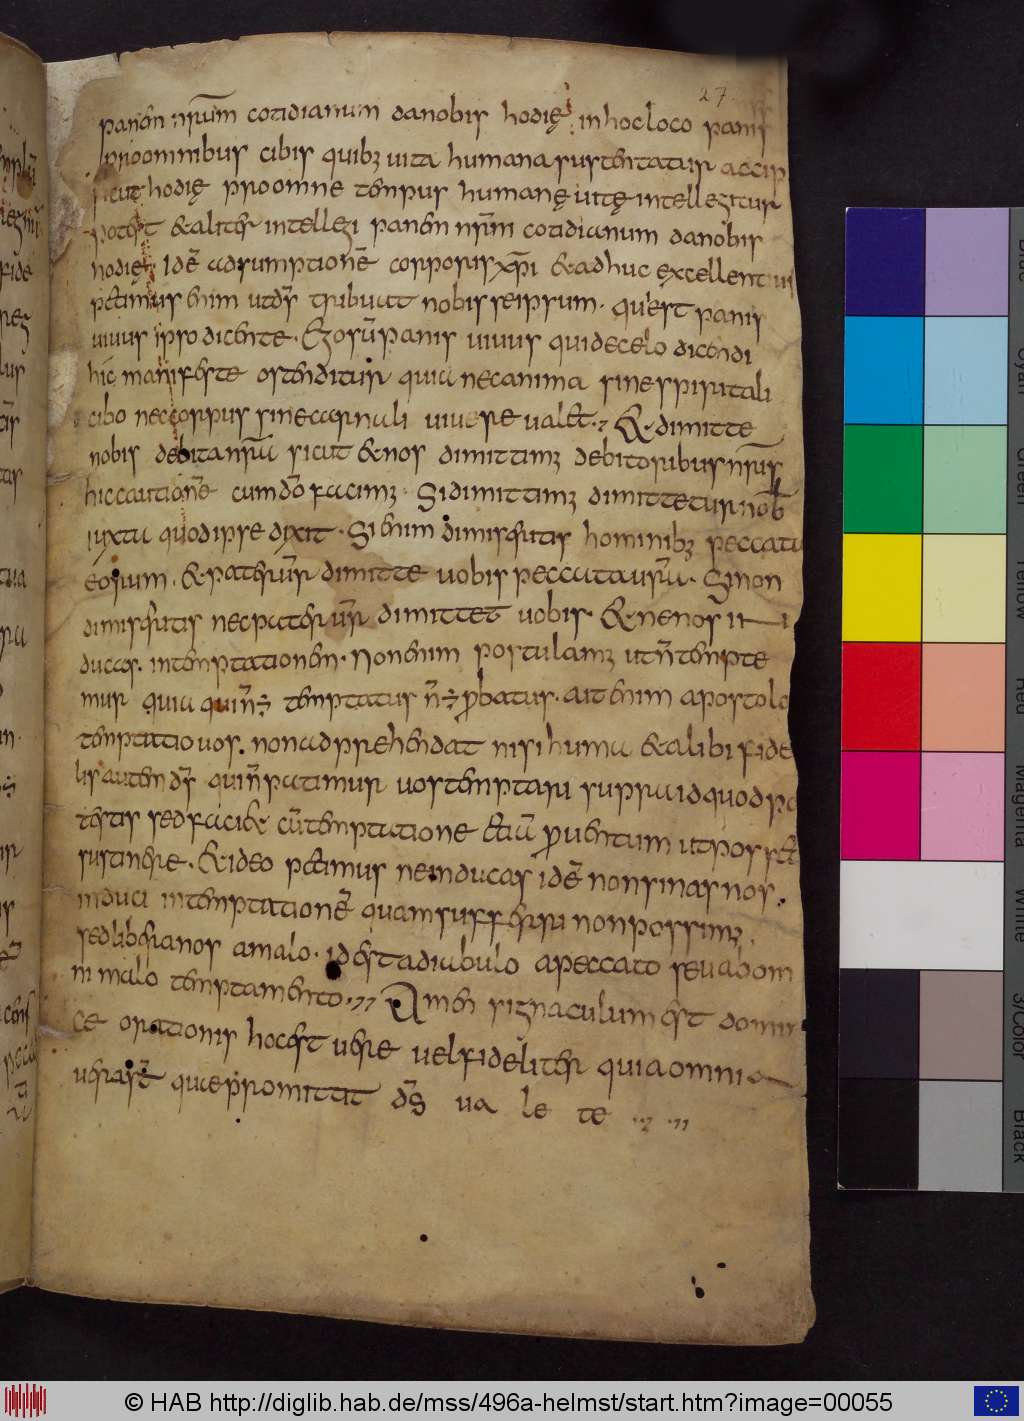 27
panem nrūm cotidianum danobis hodię inhocloco panis
proomnibus cibis quibꝫ uita humana sustentatur accip
sicut hodię proomne tempus humanę uitę intellegitur
potest &aliter intellegi panem nrm̄ cotidianum danobis
hodię Idē adsumptionē corporis xp̄i &adhuc excellentiui
petimus enim utds̄ tribuat nobis seipsum. qui est panis
uiuus ipso dicente. Egosū panis uiuus quidecelo dicendi
hic manifeste ostenditur quia necanima sinespiritali
cibo neccorpus sinecarnali uiuere ualet. &dimitte
nobis debita nrā sicut &nos dimittimꝫ debitoribus nrīs
hiccautionē cumdō facimꝫ. Sidimittimꝫ dimittetur nob̄
iuxta quodipse dixit. Si enim dimiseritis hominibꝫ peccata
eorum. &pater ur̄ dimittet uobis peccata urā. Sinon
dimiseritis necpater ur̄ dimittet uobis. &nenos in
ducas. intemptationem. Nonenim postulamꝫ utn̄tempte
mur quia quin̄÷ temptatus n̄÷ probatus. ait enim apostolo
temptatio uos. nonadprehendat nisi humā &alibi fide
lis autem ds̄ quin̄patimur uos temptari supra idquodpo
testis sedfaci& cū temptatione etiā prouentum utpossit
sustinere. &ideo petimus neinducas idē nonsinas nos.
induci intemptationē quamsufferri nonpossimꝫ.
sedliberanos amalo. idest adiabulo apeccato seuabom
ni malo temptamento. Amen signaculum est domini
ce orationis hocest uere uelfideliter quiaomnia
uera st̄ quae promittit ds̄ ua le te
© HAB http://diglib.hab.de/mss/496a-helmst/start.htm?image=00055
Blue
Cyan
Green
Yellow
Red
Magenta
White
3/Color
Black